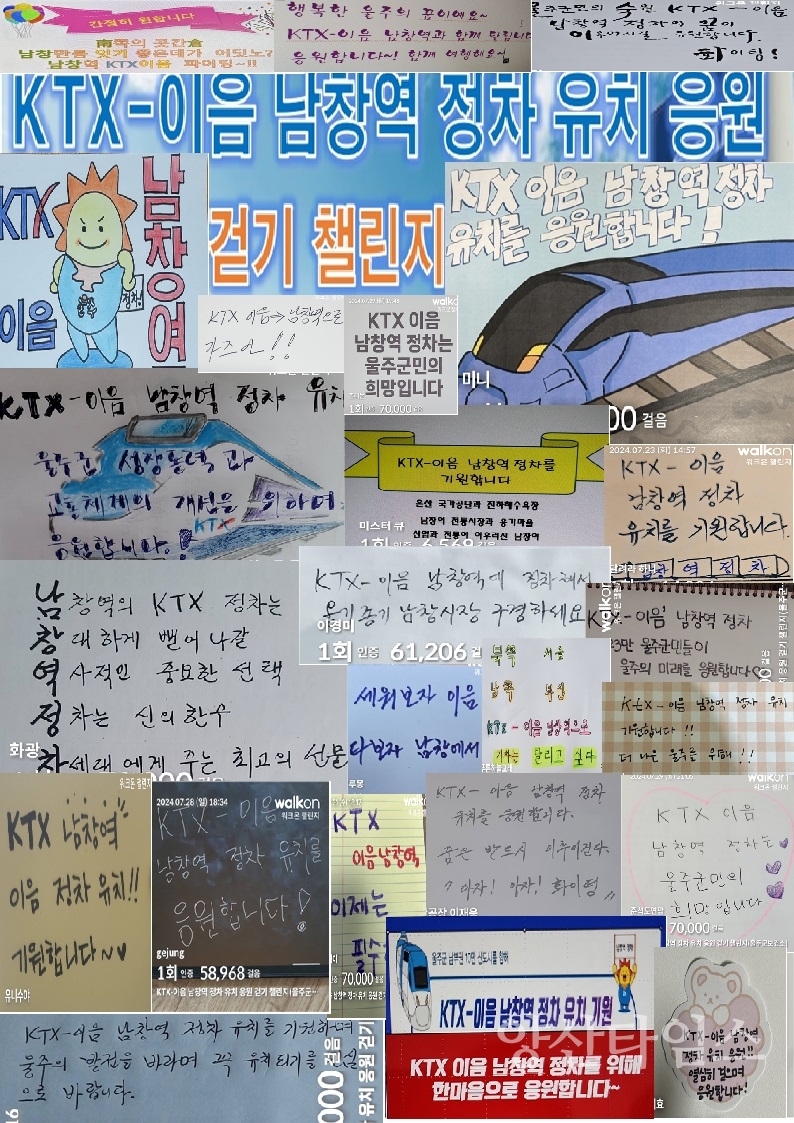 간절히 원합니다
南쪽의 곳간倉
남창만큼 잇기 좋은데가 어딧노?
남창역 KTX이음 파이팅~!!
행복한 울주의 꿈이에요~
KTX-이음 남창역과 함께 달립니다
응원합니다~! 함께 여행해요
울주군민의 KTX-이음
남창역 정차의 꿈이
이루어지길 응원합니다.
화이팅!
KTX-이음 남창역 정차 유치 응원
걷기 챌린지
KTX
이음
남창역
울주
정차
KTX 이음 남창역 정차
유치를 응원합니다!
미니
00 걸음
KTX 이음→남창역으로
가즈아!!
walkon
KTX 이음
남창역 정차는
울주군민의
희망입니다
1회 인증 70,000 걸음
KTX-이음 남창역 정차 유치
울주군 성장동력과
교통체계의 개선을 위하여
응원합니다!
KTX
KTX-이음 남창역 정차를
기원합니다
온산 국가공단과 진하해수욕장
남창역 전통시장과 옹기마을
산업과 전통이 어우러진 남창역
미스터 큐
1회 인증 6,569 걸음
2024.07.23 (화) 14:57
walkon
워크온 챌린지
KTX-이음
남창역 정차
유치를 기원합니다.
남창역정차
달려라 하니
남창역의 KTX 정차는
창대하게 뻗어 나갈
역사적인 중요한 선택
정차는 신의 한수
차세대에게 주는 최고의 선물
화광
KTX-이음 남창역에 정차해서
옹기종기 남창시장 구경하세요
이경미
1회 인증 61,206 걸음
KTX-이음 남창역 정차
23만 울주군민들이
울주의 미래를 응원합니다♡
walkon
세워보자 이음
타보자 남창에서
루몽
북쪽 서울
남쪽 부산
KTX-이음 남창역으로
기차는 달리고 싶다
KTX-이음 남창역 정차 유치
기원합니다!!
더 나은 울주를 위해!!!
워크온 챌린지
KTX 남창역
이음 정차 유치!!
기원합니다~♥
유니수아
2024.07.28 (일) 18:34
walkon
워크온 챌린지
KTX-이음
남창역 정차 유치를
응원합니다!
gejung
1회 인증 58,968 걸음
KTX-이음 남창역 정차 유치 응원 걷기 챌린지(울주군
KTX
이음남창역
이제는
필수
70,000 걸음
KTX-이음 남창역 정차
유치를 응원합니다.
꿈은 반드시 이루어진다.
"아자! 아자! 화이팅"
공장 이재욱
walkon
워크온 챌린지
KTX 이음
남창역 정차는
울주군민의
희망입니다
70,000 걸음
역 정차 유치 응원 걷기 챌린지(울주군보건소)
울주군 남부권 10만 신도시를 향해
KTX-이음 남창역 정차 유치 기원
KTX 이음 남창역 정차를 위해
한마음으로 응원합니다~
KTX-이음 남창역
정차 유치 응원!!
열심히 걸으며
응원합니다!
KTX-이음 남창역 정차 유치를 기원하며
울주의 발전을 바라며 꼭 유치되기를 진심
으로 바랍니다.
000 걸음
유치 응원 걷기
16